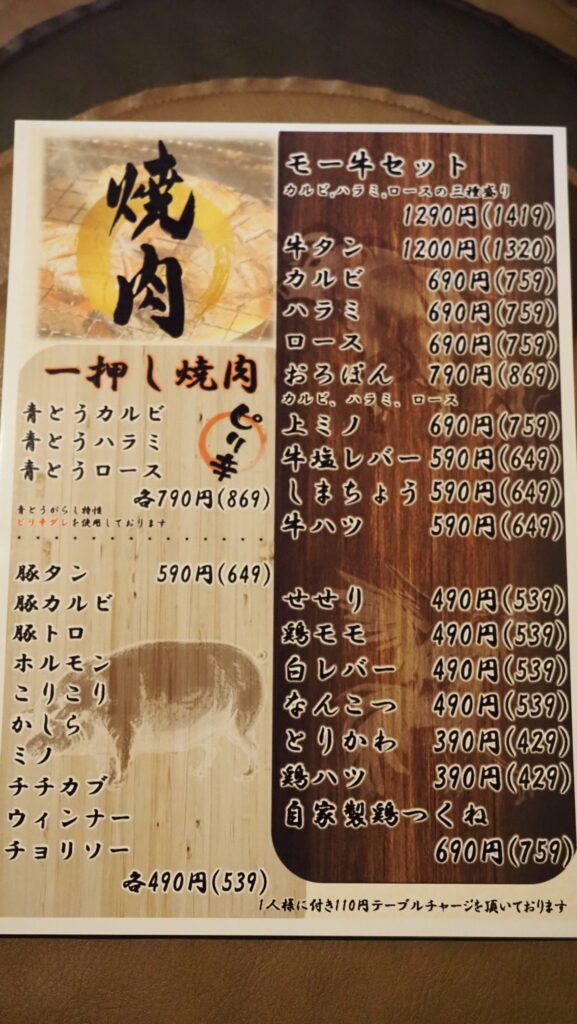 焼肉
一押し焼肉
ピリ辛
青とうカルビ
青とうハラミ
青とうロース
各790円(869)
青とうがらし特性
ピリ辛ダレを使用しております
豚タン 590円(649)
豚カルビ
豚トロ
ホルモン
こりこり
かしら
ミノ
チチカブ
ウィンナー
チョリソー
各490円(539)
モー牛セット
カルビ,ハラミ,ロースの三種盛り
1290円(1419)
牛タン 1200円(1320)
カルビ 690円(759)
ハラミ 690円(759)
ロース 690円(759)
おろぽん 790円(869)
カルビ、ハラミ、ロース
上ミノ 690円(759)
牛塩レバー 590円(649)
しまちょう 590円(649)
牛ハツ 590円(649)
せせり 490円(539)
鶏モモ 490円(539)
白レバー 490円(539)
なんこつ 490円(539)
とりかわ 390円(429)
鶏ハツ 390円(429)
自家製鶏つくね
690円(759)
1人様に付き110円テーブルチャージを頂いております